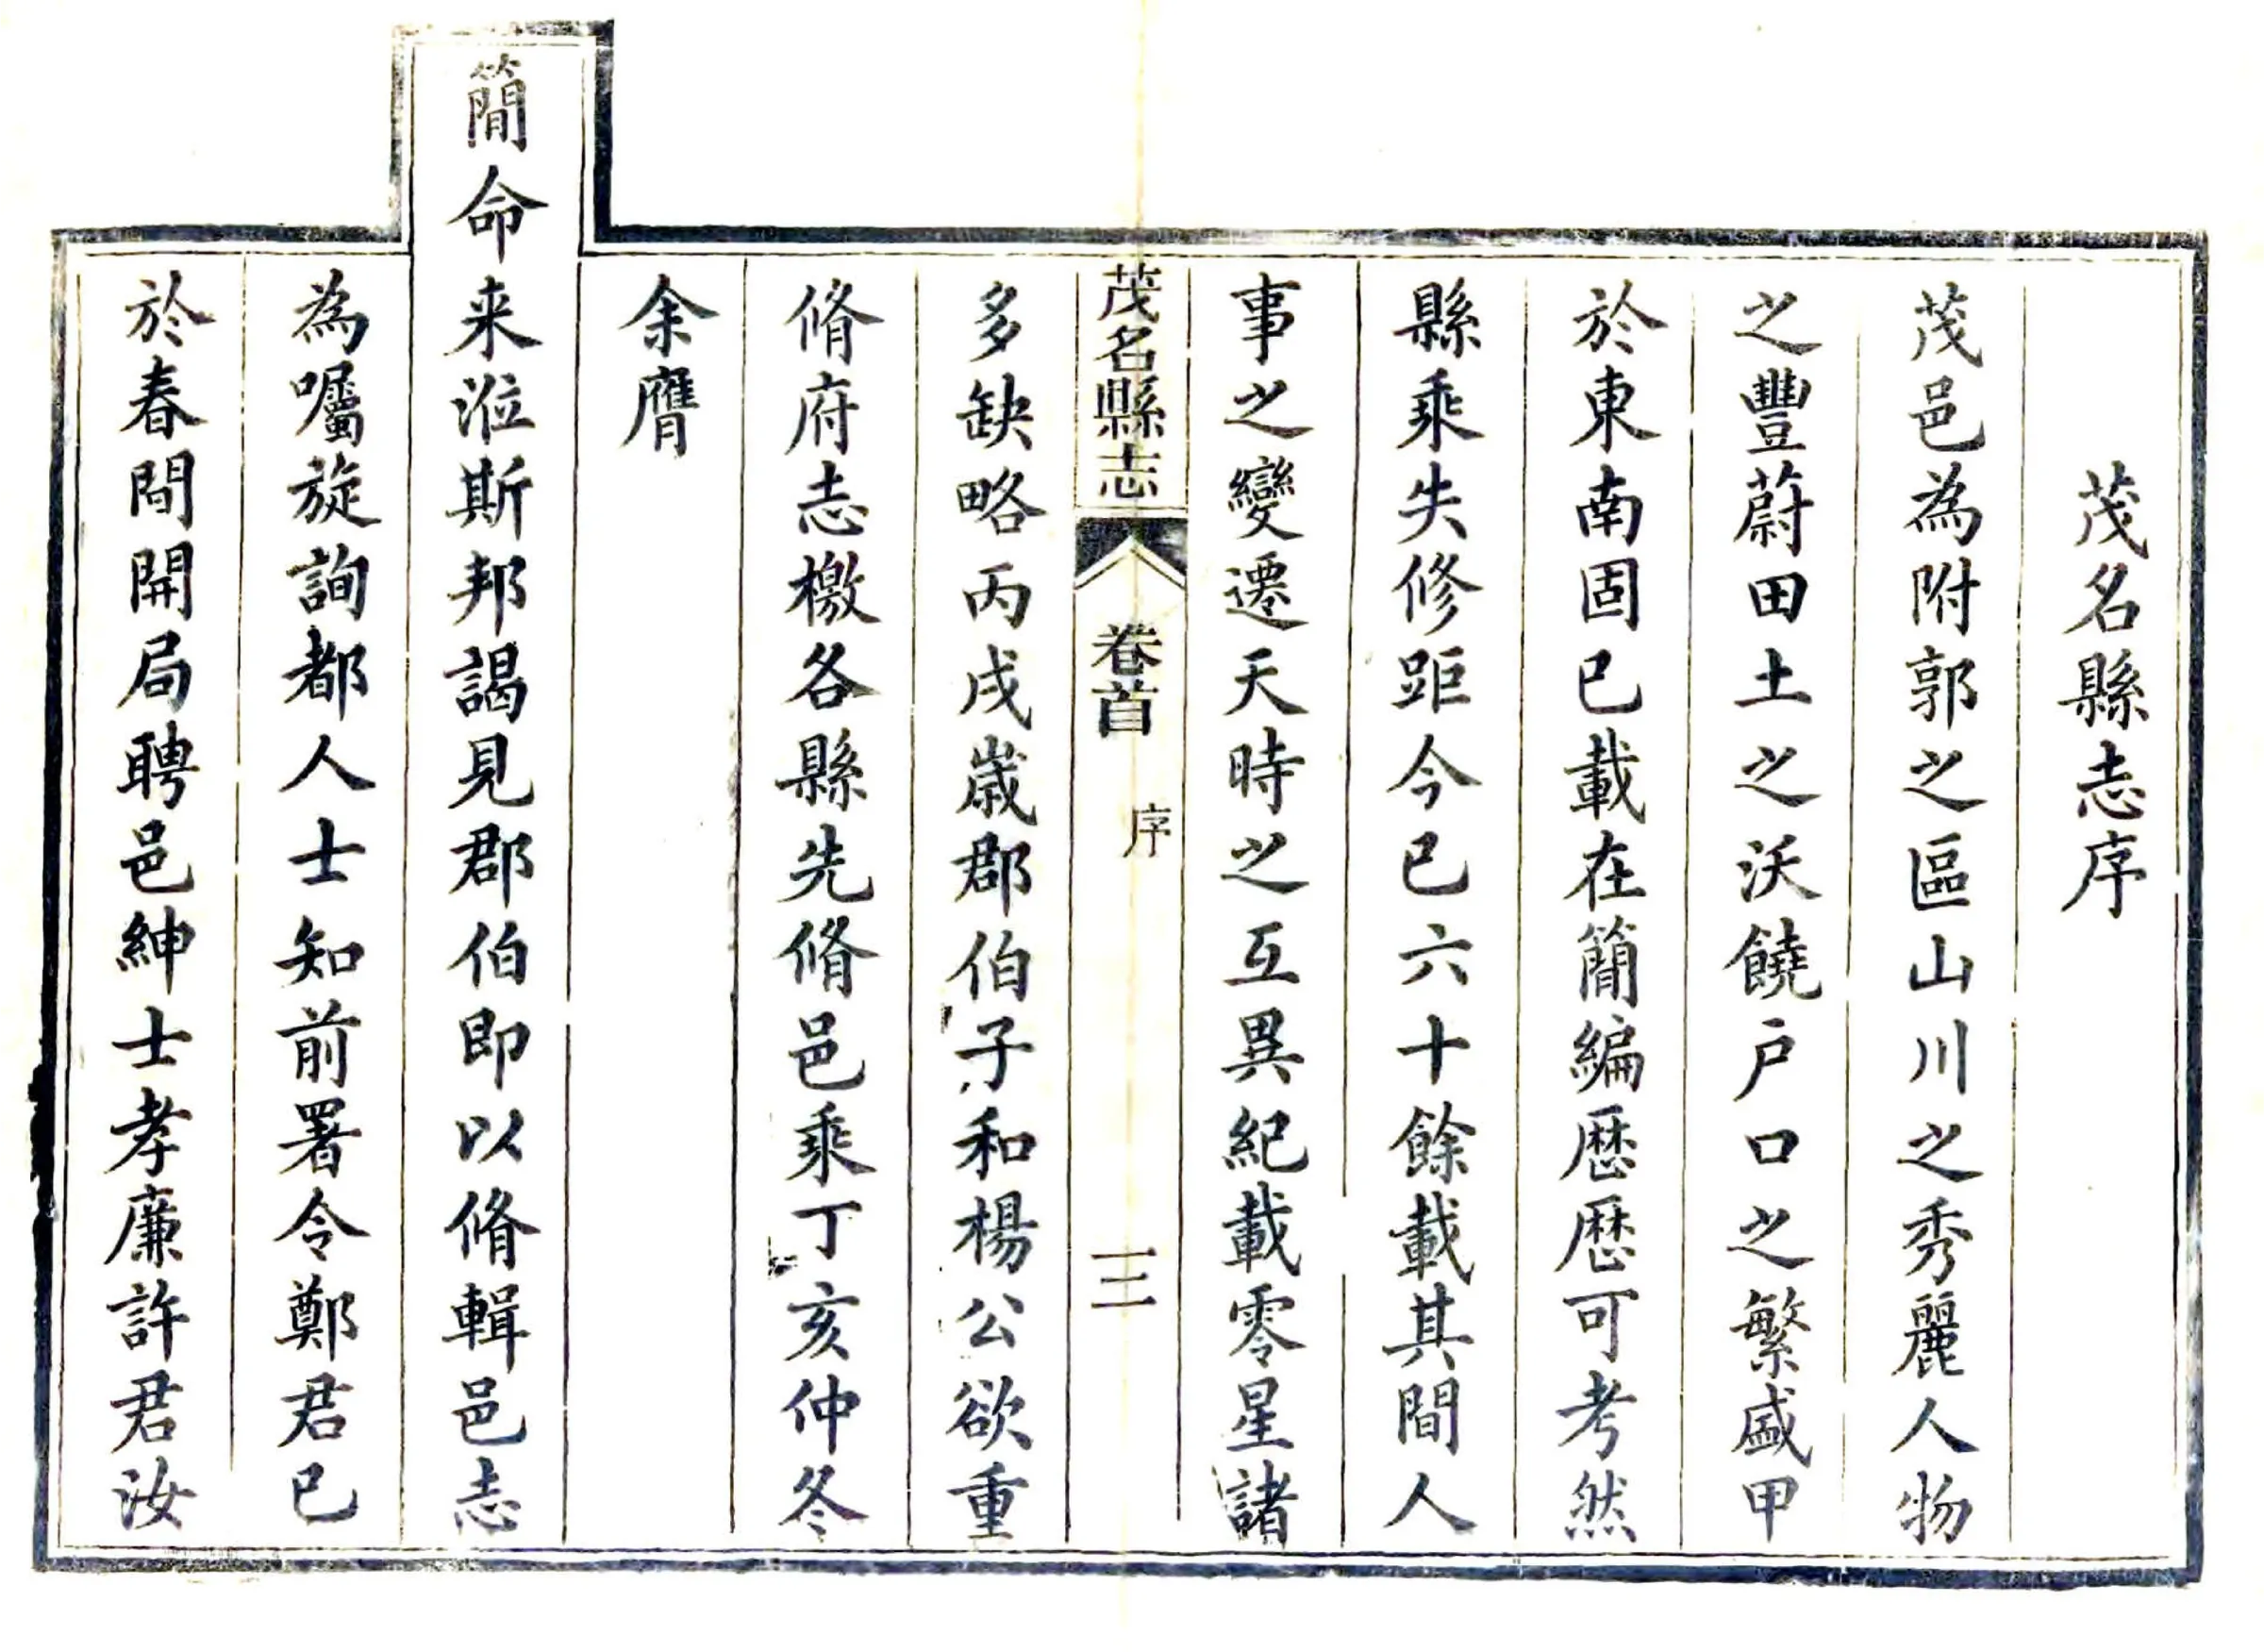 茂名縣志序
茂邑為附郭之區山川之秀麗人物
之豐蔚田土之沃饒戶口之繁盛甲
於東南固已載在簡編歷歷可考然
縣乘失修距今已六十餘載其間人
事之變遷天時之互異紀載零星諸
茂名縣志 卷首 序 三
多缺略丙戌歲郡伯子和楊公欲重
脩府志檄各縣先脩邑乘丁亥仲冬
余膺
簡命来涖斯邦謁見郡伯即以脩輯邑志
為囑旋詢都人士知前署令鄭君已
於春間開局聘邑紳士孝廉許君汝